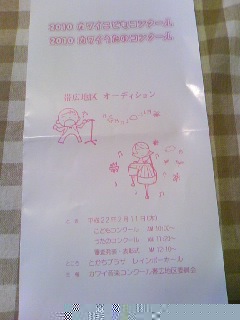 2010 カワイこどもコンクール
2010 カワイうたのコンクール
帯広地区 オーディション
とき 平成22年2月11日(木)
こどもコンクール AM 10:30~
うたのコンクール AM 11:20~
審査発表・表彰式 PM 12:10~
ところ とかちプラザ レインボーホール
カワイ音楽コンクール帯広地区委員会